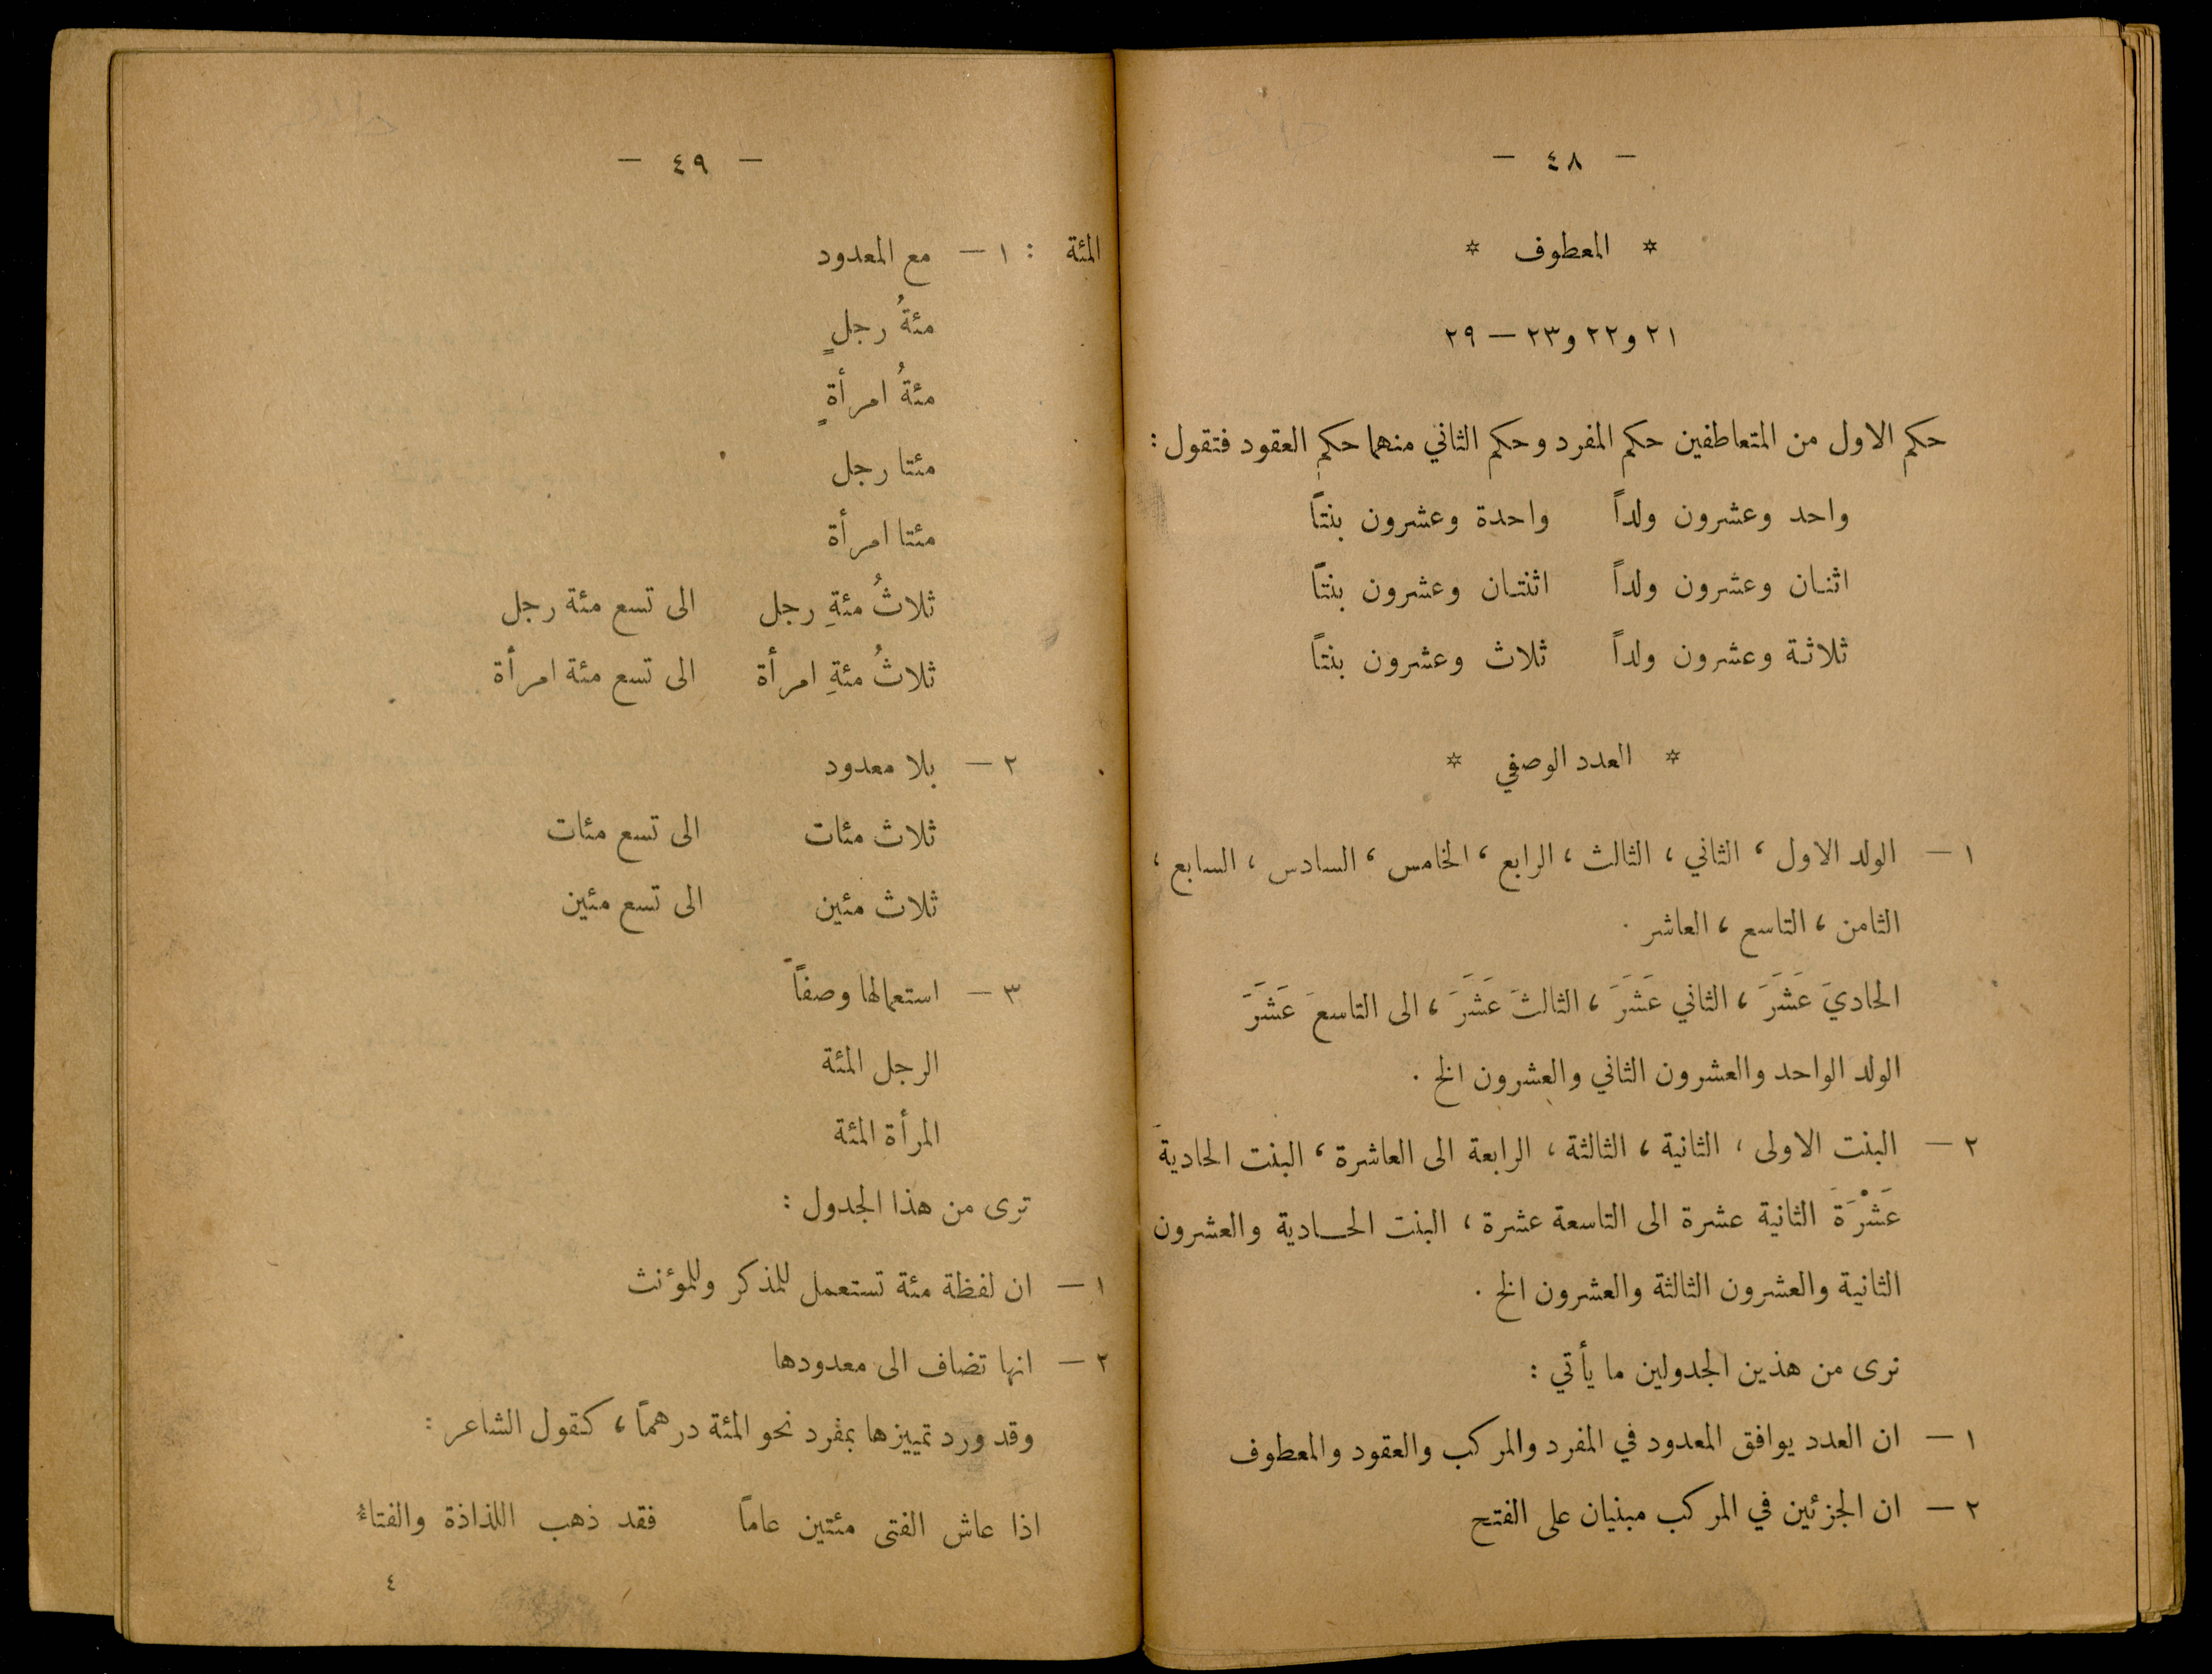 — ٤٨ —
* المعطوف *
٢١ و٢٢ و٢٣ — ٢٩
حكم الاول من المتعاطفين حكم المفرد وحكم الثاني منهما حكم العقود فتقول :
واحد وعشرون ولداً واحدة وعشرون بنتاً
اثنان وعشرون ولداً اثنتان وعشرون بنتاً
ثلاثة وعشرون ولداً ثلاث وعشرون بنتاً
* العدد الوصفي *
١ — الولد الاول ، الثاني ، الثالث ، الرابع ، الخامس ، السادس ، السابع ،
الثامن ، التاسع ، العاشر .
الحاديَ عَشَرَ ، الثاني عَشَرَ ، الثالثَ عَشَرَ ، الى التاسعَ عَشَرَ
الولد الواحد والعشرون الثاني والعشرون الخ .
٢ — البنت الاولى ، الثانية ، الثالثة ، الرابعة الى العاشرة ، البنت الحاديةَ
عَشْرَةَ الثانية عشرة الى التاسعة عشرة ، البنت الحادية والعشرون
الثانية والعشرون الثالثة والعشرون الخ .
نرى من هذين الجدولين ما يأتي :
١ — ان العدد يوافق المعدود في المفرد والمركب والعقود والمعطوف
٢ — ان الجزئين في المركب مبنيان على الفتح
— ٤٩ —
المئة : ١ — مع المعدود
مئةُ رجلٍ
مئةُ امرأةٍ
مئتا رجل
مئتا امرأة
ثلاثُ مئةِ رجل الى تسع مئة رجل
ثلاثُ مئةِ امرأة الى تسع مئة امرأة
٢ — بلا معدود
ثلاث مئات الى تسع مئات
ثلاث مئين الى تسع مئين
٣ — استعمالها وصفاً
الرجل المئة
المرأة المئة
ترى من هذا الجدول :
١ — ان لفظة مئة تستعمل للمذكر وللمؤنث
٢ — انها تضاف الى معدودها
وقد ورد تمييزها بمفرد نحو المئة درهماً ، كقول الشاعر :
اذا عاش الفتى مئتين عاماً فقد ذهب اللذاذة والفتاءُ
٤